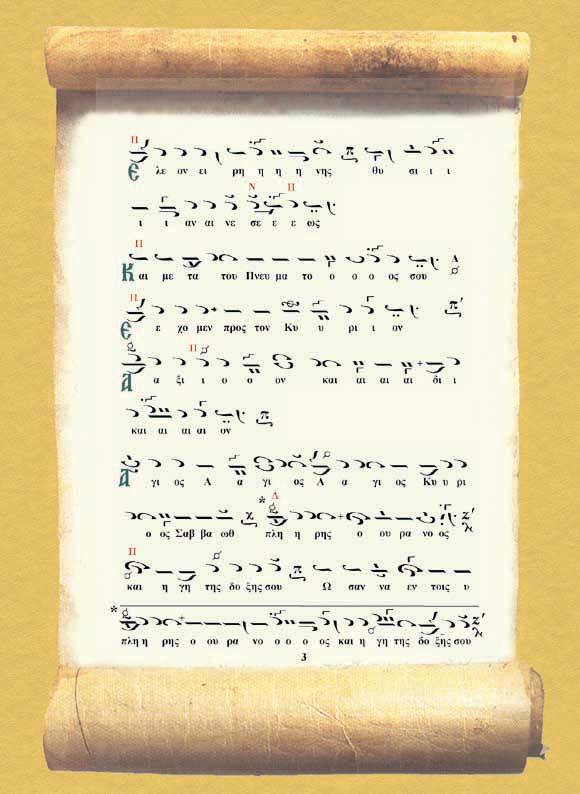 Π
Ε λε ον ει ρη η η η νης θυ σι ι ι
Ν Π
ι ι αν αι νε σε ε ε ως
Π
Και με τα του Πνευ μα το ο ο ο ος σου Δ
Π
Ε ε χο μεν προς τον Κυ υ ρι ι ον π′
Π
Α α ξι ι ο ο ον και αι αι αι δι ι
και αι αι αι ον π
Α γι ος Α α γι ος Α α γι ος Κυ υ ρι
* Δ
ο ος Σαβ βα ωθ χ πλη η ρης ο ου ρα νο ος ζ′
Π
και η γη της δο ξης σου π Ω σαν να εν τοις υ
* πλη η ρης ο ου ρα νο ο ο ο ος και η γη της δο ξης σου ζ′
3